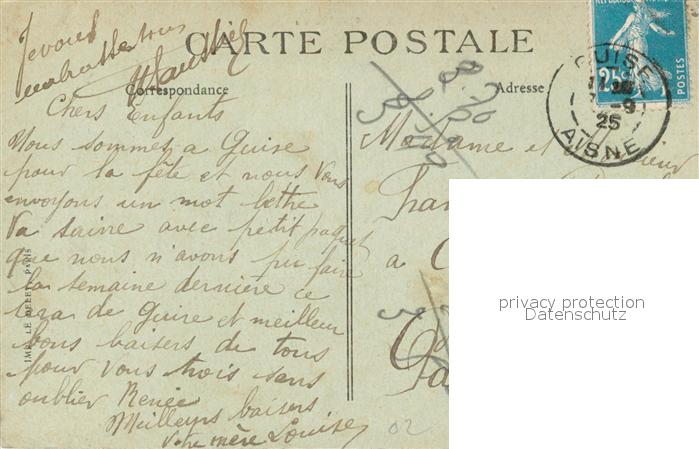 Je vous
embrasse tous
CARTE POSTALE
Correspondance
Adresse
25
POSTES
GUISE
9
25
AISNE
Chers Enfants
Nous sommes a Guise
pour la fête et nous vous
envoyons un mot lettre
va suivre avec petit paquet
que nous n'avons pu faire
la semaine dernière ce
sera de Guise et meilleur
bons baisers de tous
pour vous trois sans
oublier Renée
Meilleurs baisers
votre mère Louise
Madame et
a
02
IMP. LE DELEY, PARIS
privacy protection
Datenschutz